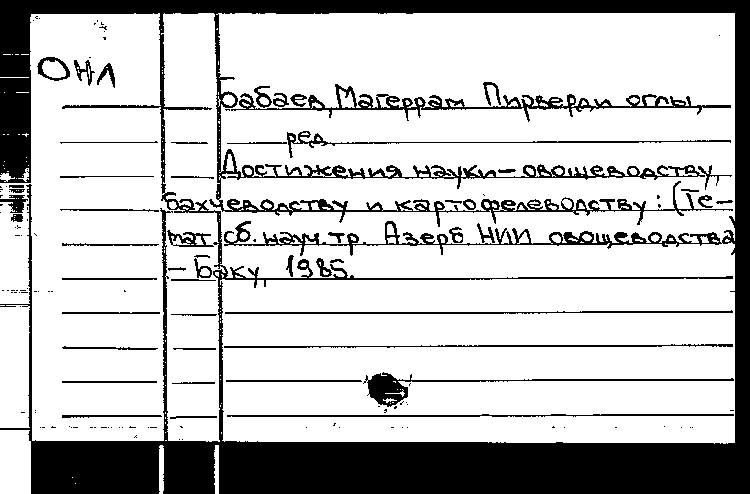 ОНЛ
Бабаев, Магеррам Пирверди оглы,
ред.
Достижения науки – овощеводству,
бахчеводству и картофелеводству: (Те-
мат. сб. науч. тр. Азерб НИИ овощеводства)
– Баку, 1985.